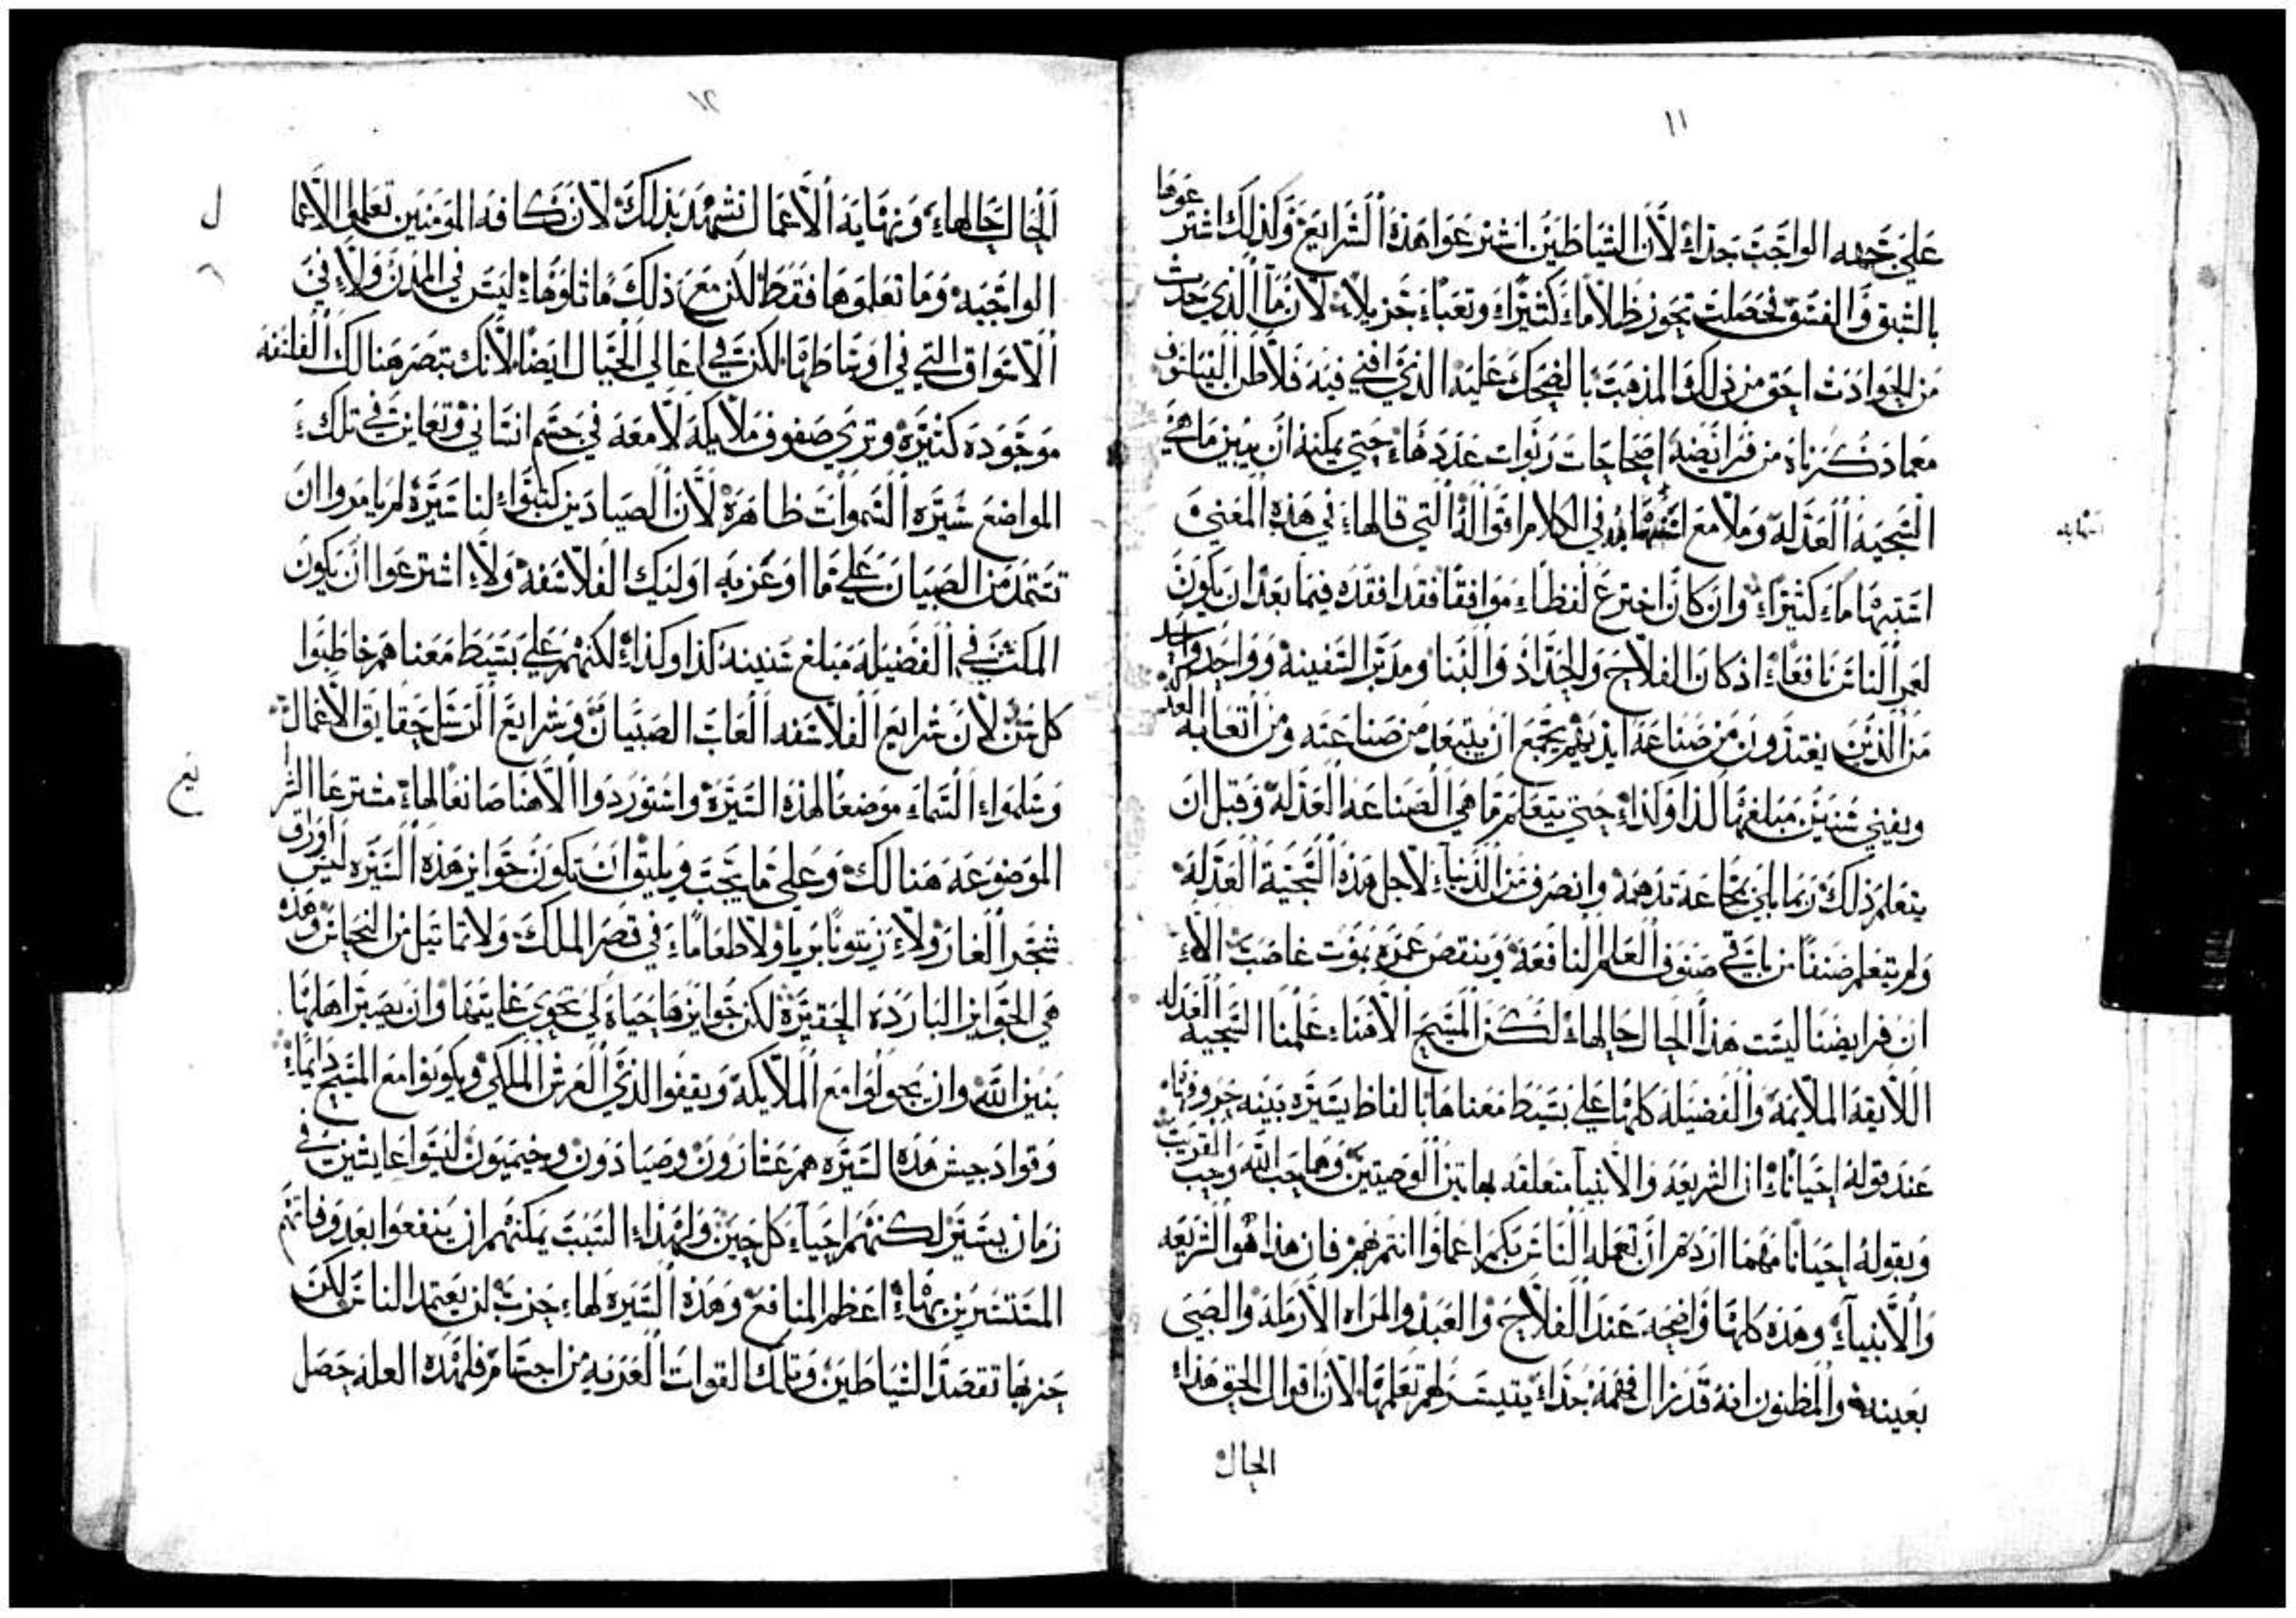 ١١
على جهه الواجب جداً لان الشياطين اشترعوا هذه الشرايع وكذلك اشترعوها
بالشبق والفسق فحصلت تحوز ظلاماً كثيراً وتعباً جزيلاً لان ما الذي حدث
من الحوادث احق من ذلك المذهب بالضحك عليه الذي افني فيه فلاطن الفيلسوف
معما ذكرناه من فرايضه ربوات عددها حتى يمكنه ان يبين ما هي
السجيه العدله وملا مع اسهابه في الكلام اقواله التي قالها في هذه المعنى
اشتبهاماً كثيراً وان كان اخترع لفظاً موافقاً فقد افقده فيما بعد ان يكون
لعمر الناس نافعاً اذ كان الفلاح والحداد والبنا ومدبر السفينه وواحد واحد
من الذين يغتذون من صناعة ايديهم يجمع ان يتبعد من صناعته ومن اتعابه العدله
ويفني سنين مبلغها كذا وكذا حتى يتعلم ما هي الصناعه العدله وقبل ان
يتعلم ذلك ربما بلي بمجاعة تدهمه وانصرف من الدنيا لاجل هذه السجية العدلة
ولم يتعلم صنفاً من باقي صنوف العلم النافعة وينقص عمره بموت غاصب الا
ان فرايضنا ليست هذا الحال حالها لكن المسيح الاهنا علمنا السجيه العدله
اللايقه الملايمه والفضيله كلها على بسيط معناها بالفاظ يسيره بينه حروفها
عند قوله احياناً ان الشريعه والانبيا متعلقه بهاتين الوصيتين وهما حب الله وحب القريب
وبقوله احياناً مهما اردتم ان تعمله الناس بكم اعملوا انتم بهم فان هذا هو الشريعه
والانبياء وهذه كلها واضحه عند الفلاح والعبد والمراه الارمله والصبي
بعينه والمظنون انه قد زال فهمه جداً يتيسر لهم تعلمها لان اقوال الحق هذا
الحال
اسهابه
١٢
الحال حالها ونهاية الاعمال تشهد بذلك لان كافه المومنين تعلموا الاعما
ل
الواجبه وما تعلموها فقط لكن مع ذلك ما تلوها ليس في المدن ولا في
الاسواق التي في اوساطها لكن في اعالي الجبال ايضاً لانك تبصر هنالك الفلسفه
موجوده كثيره وترى صفوف ملايكة لامعه في جسم انساني وتعاين في تلك
المواضع سيره السموات ظاهرة لان الصيادين كتبوا لنا سيرة لم يامروا ان
تستمد من الصبيان على ما اوعز به اوليك الفلاسفه ولا اشترعوا ان يكون
المكث في الفضيله مبلغ سنينه كذا وكذا لكنهم على بسيط معناهم خاطبوا
كل سن لان شرايع الفلاسفه العاب الصبيان وشرايع الرسل حقايق الاعمال
وسلموا السماء موضعاً لهذه السيرة واستوردوا الاهنا صانعاً لها مشترعا الشرا
يع
الموضوعه هنالك وعلى ما يجب ويليق ان تكون جوايز هذه السيره ليس اوراق
شجر الغار ولا زيتوناً برياً ولا طعاماً في قصر الملك ولا تماثيل من النحاس وهذه
هي الجوايز البارده الحقيرة لكن جوايزها حياة لن تحوي غايتها وان يصير اهلها
بنين الله وان يجولوا مع الملايكة ويقفوا لدى العرش الملكي ويكونوا مع المسيح دايماً
وقواد جيش هذه السيره هم عشارون وصيادون وخيميون ليسوا عايشين في
زمان يسير لكنهم احياء كل حين ولهذا السبب يمكنهم ان ينفعوا بعد وفاتهم
المتسيرين بها اعظم المنافع وهذه السيره لها حزب لن يعتمد الناس لكن
حزبها تقصد الشياطين وتلك القوات العريه من اجسام فلهذه العله حصل